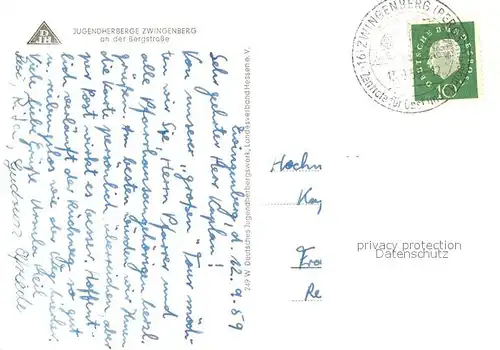 JUGENDHERBERGE ZWINGENBERG
an der Bergstraße
Zwingenberg, d. 12.9.59
Sehr geehrter Herr Kaplan!
Von unserer „großen" Tour möch-
ten wir Sie, Herrn Pfarrer und
alle Pfarrhausangehörigen herzl.
grüßen. Am besten würden wir Ihnen
die Karte persönlich überreichen, aber
per Post wirkt es besser. Hoffent-
lich verläuft der Rückweg so gut
u. reibungslos wie der Weg hierher.
Viele liebe Grüße Ursula Keil
Rita, Gudrun
249 W Deutsches Jugendherbergswerk, Landesverband Hessen e. V.
16 ZWINGENBERG (BERGSTR
DEUTSCHE BUNDESPOST
10
Hochw
Kap
Re
privacy protection
Datenschutz